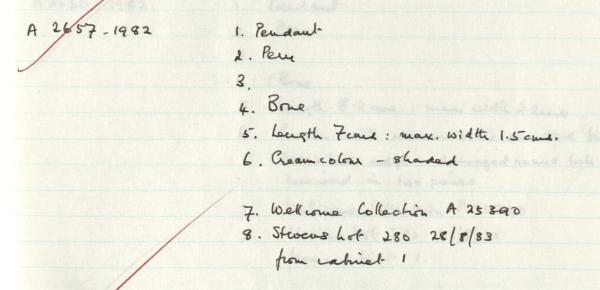 A 2657-1982
1. Pendant
2. Peru
3.
4. Bone
5. Length 7cms : max. width 1.5cms.
6. Cream colour - shaded
7. Wellcome Collection A 25390
8. Stevens Lot 280 28/8/83
from cabinet 1